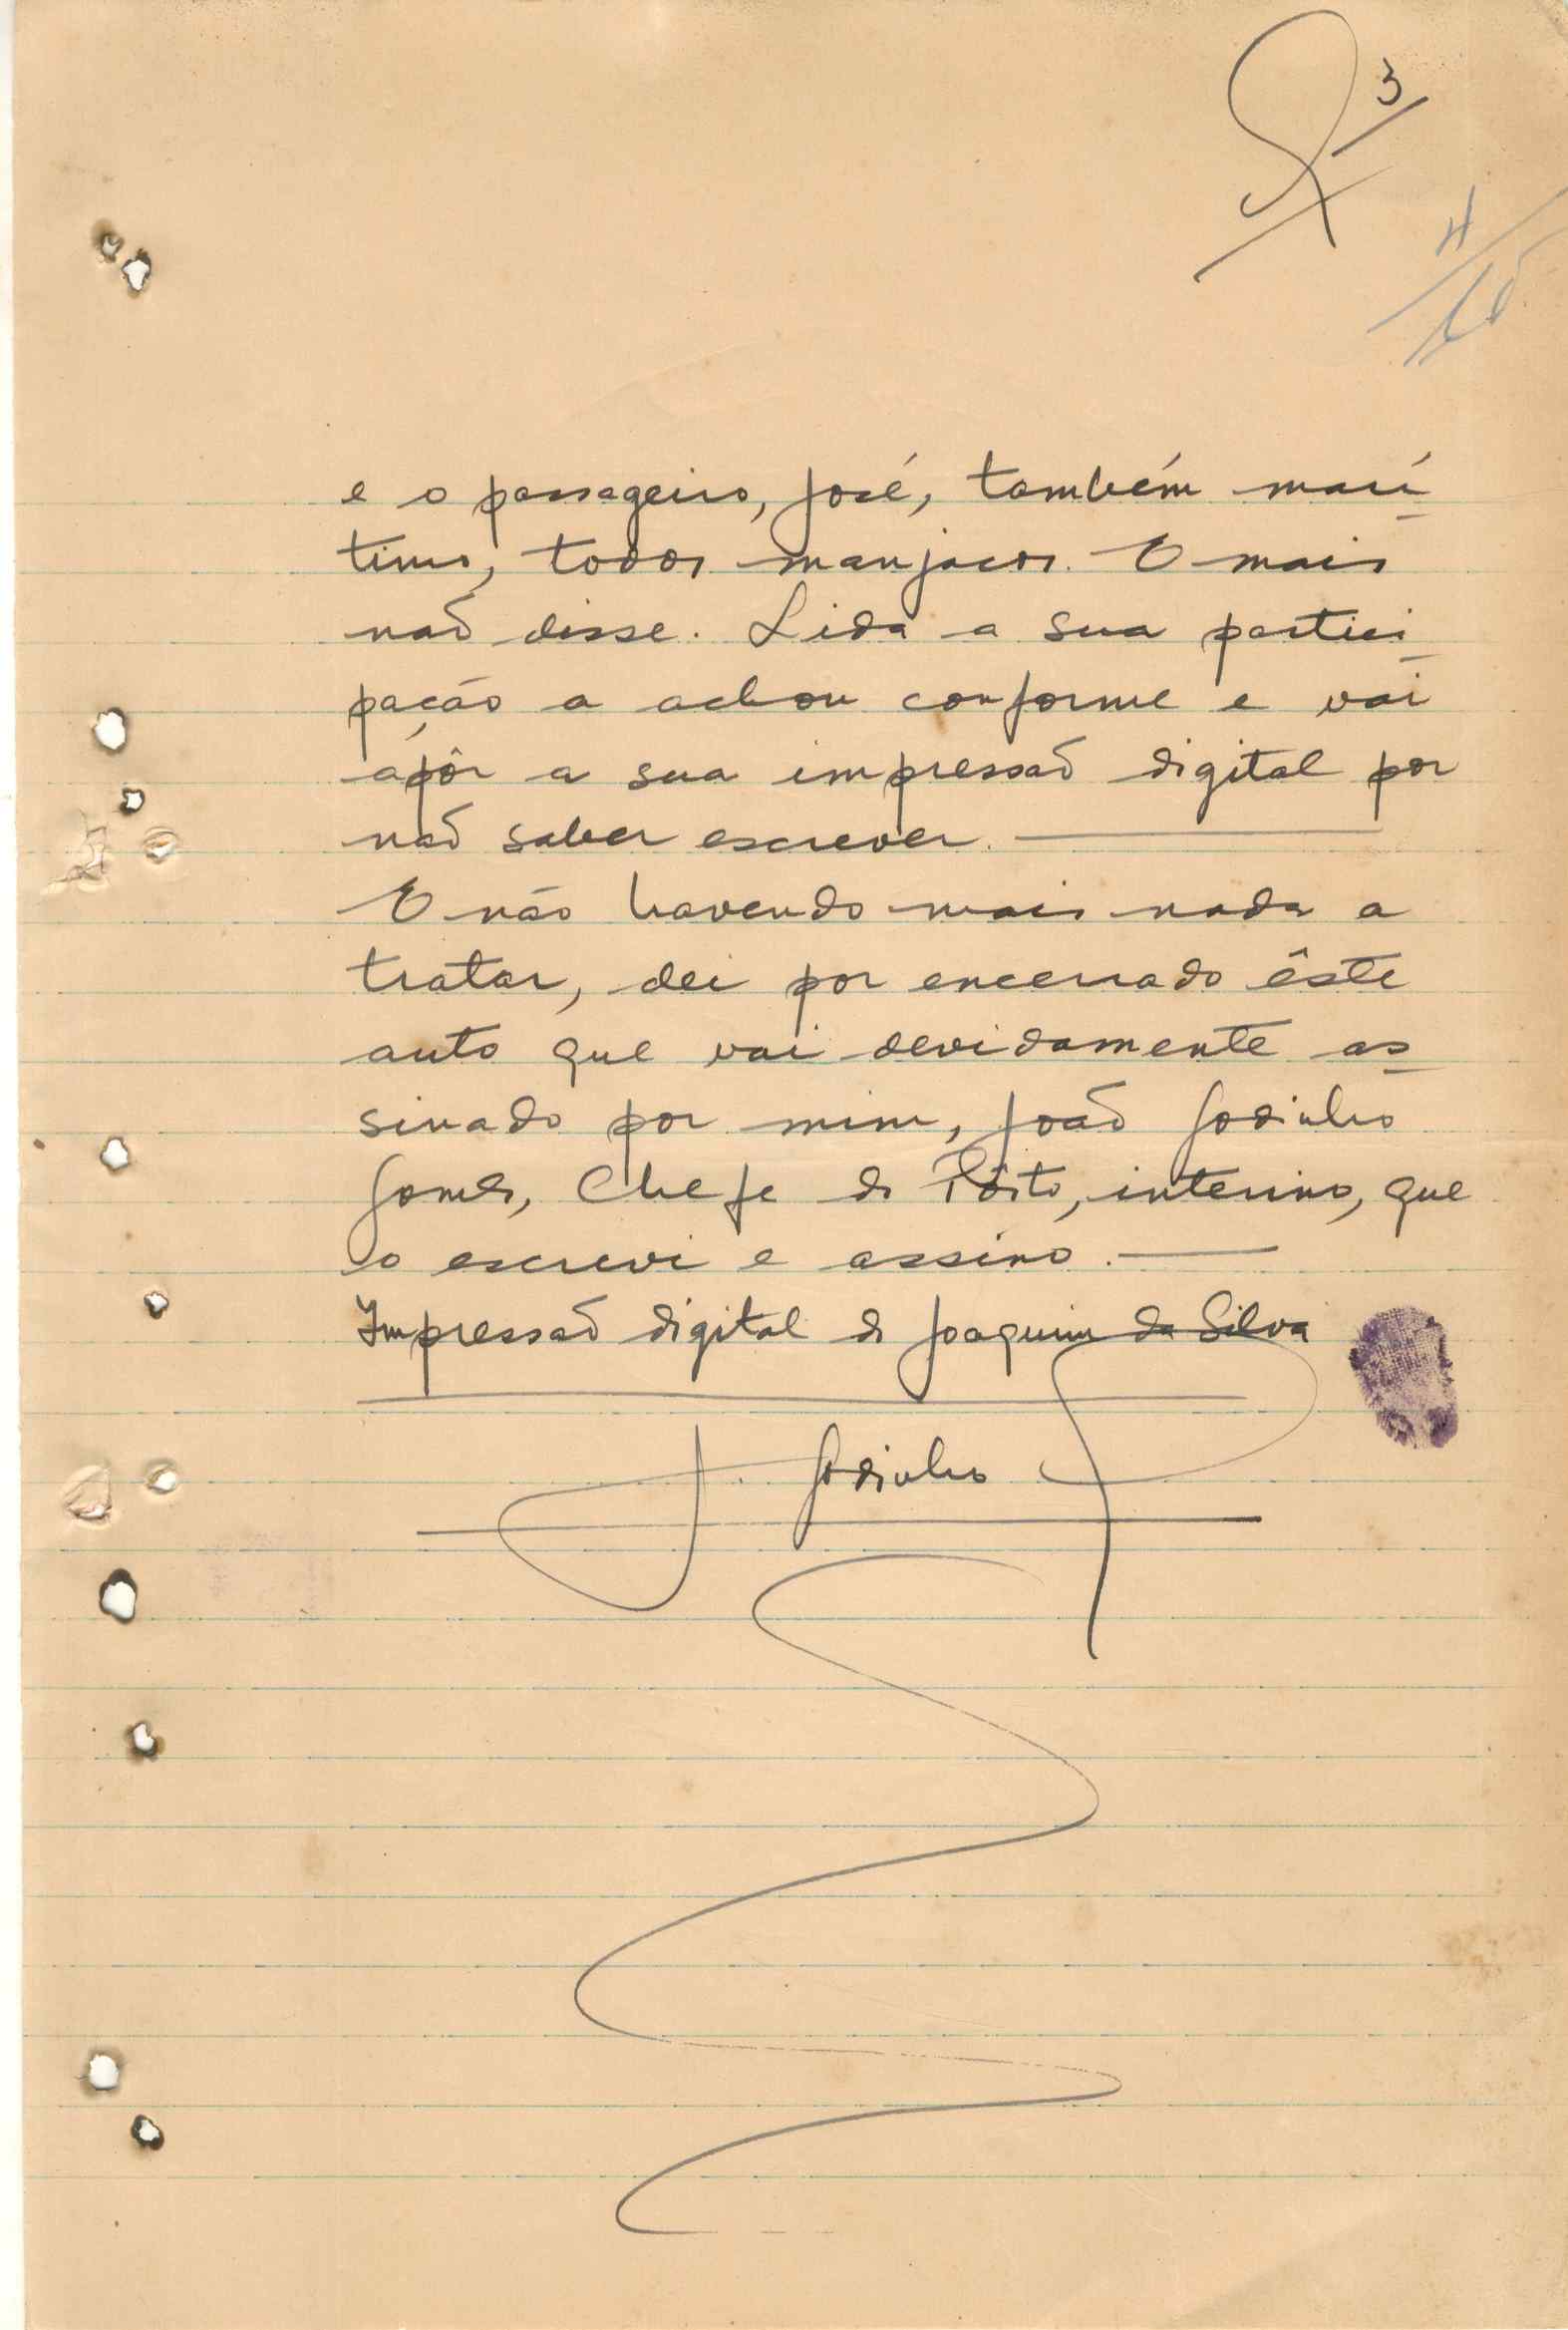 3
4
e o passageiro, José, também marí-
timo, todos manjacos. E mais
não disse. Lida a sua partici-
pação a achou conforme e vai
apôr a sua impressão digital por
não saber escrever.
E não havendo mais nada a
tratar, dei por encerrado êste
auto que vai devidamente as-
sinado por mim, João Godinho
Gomes, Chefe de Pôsto, interino, que
o escrevi e assino.
Impressão digital de Joaquim da Silva
J. Godinho